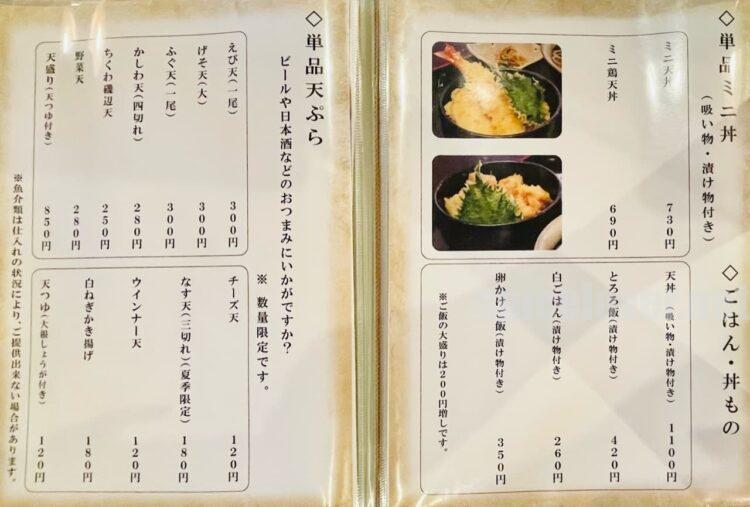 ◇単品ミニ丼
(吸い物・漬け物付き)
ミニ天丼 730円
ミニ鶏天丼 690円
◇ごはん・丼もの
天丼(吸い物・漬け物付き) 1100円
とろろ飯(漬け物付き) 420円
白ごはん(漬け物付き) 260円
卵かけご飯(漬け物付き) 350円
※ご飯の大盛りは200円増しです。
◇単品天ぷら
ビールや日本酒などのおつまみにいかがですか?
※数量限定です。
えび天(一尾) 300円
げそ天(大) 300円
ふぐ天(一尾) 300円
かしわ天(四切れ) 280円
ちくわ磯辺天 250円
野菜天 280円
天盛り(天つゆ付き) 850円
チーズ天 120円
なす天(三切れ)(夏季限定) 180円
ウインナー天 120円
白ねぎかき揚げ 180円
天つゆ(大根しょうが付き) 120円
※魚介類は仕入れの状況により、ご提供出来ない場合があります。